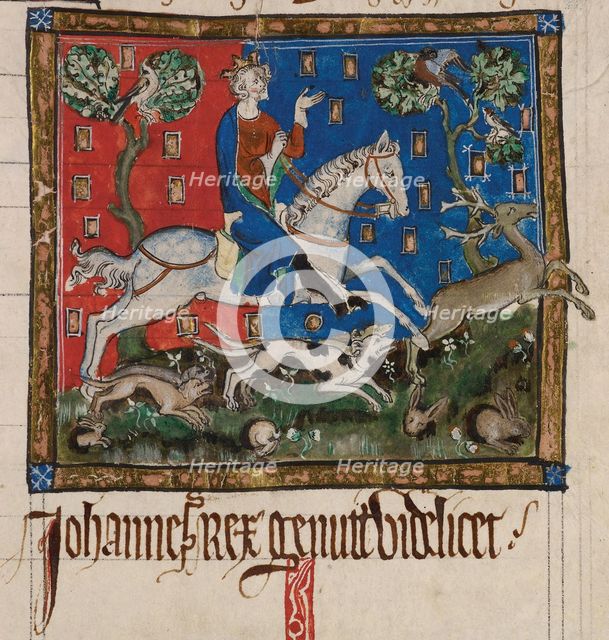 Heritage Heritage
Heritage Heritage
Heritage Heritage
Johannes Rex genuit videlicet